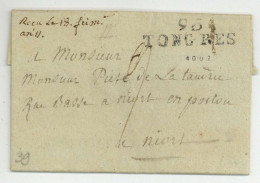 Reçu le 18. frim.
an 11.
96
TONGRES
a Monsieur
Monsieur Piet de La
Rue Basse a niort en poitou
a niort